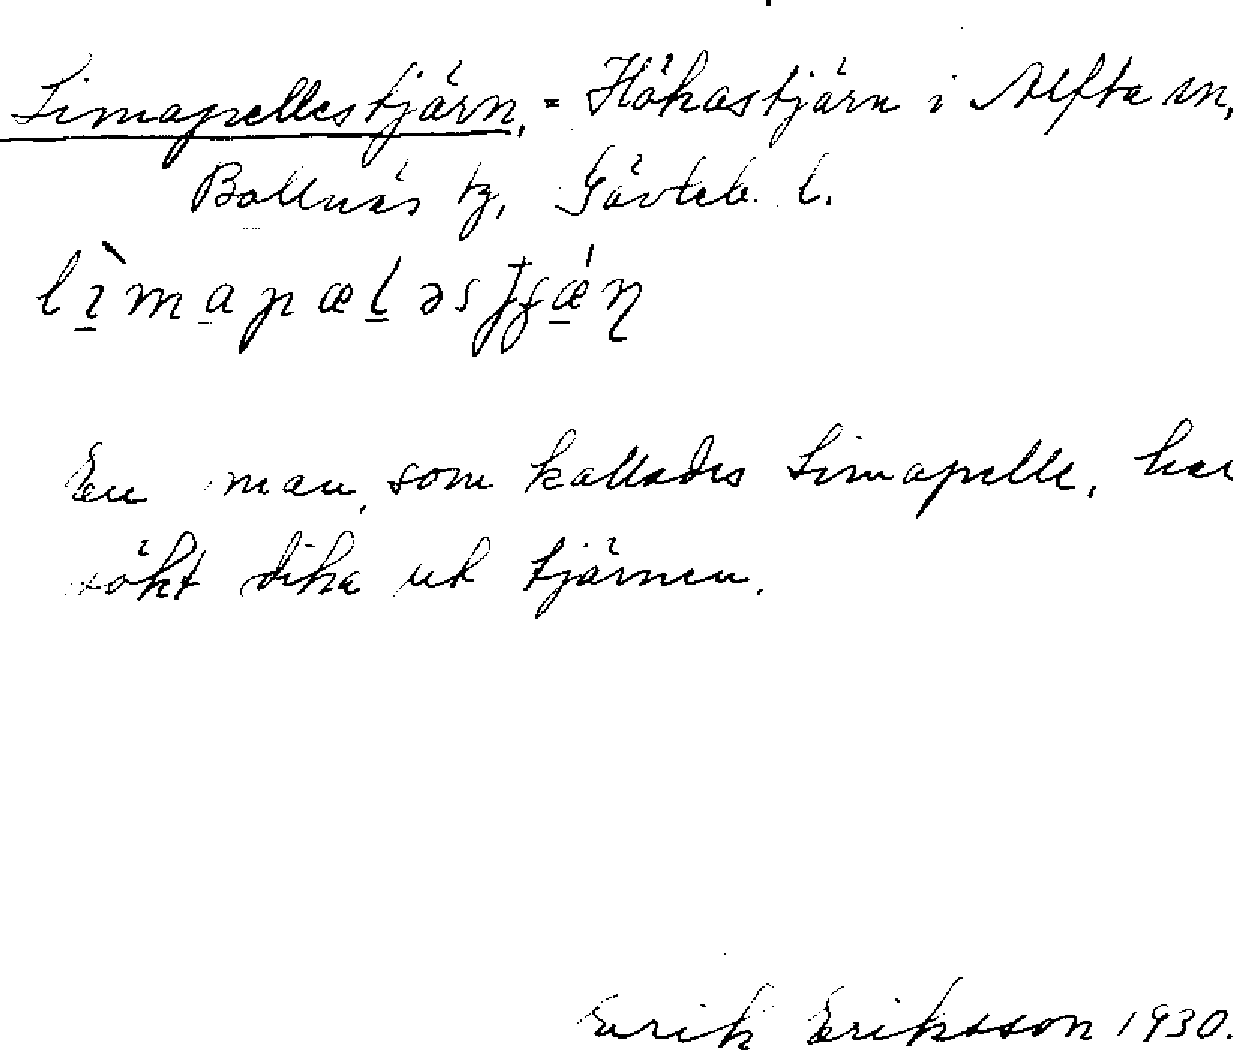 Limapellestjärn, = Hökastjärn i Alfta sn,
Bollnäs tg, Gävleb. l.
lìmapælǝstjǽɳ
En man, som kallades Limapelle, har
sökt dika ut tjärnen.
Erik Eriksson 1930.